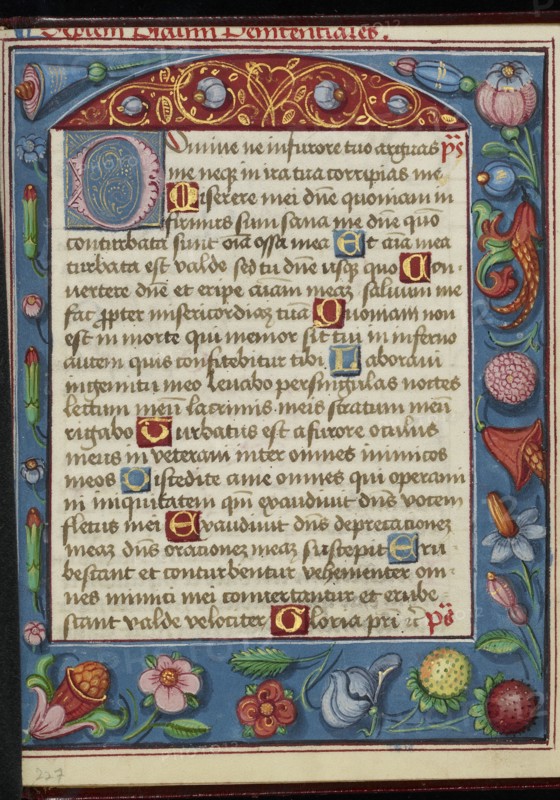 Septem psalmi penitentiales.
Domine ne in furore tuo arguas p̄s
me neq; in ira tua corripias me
Miserere mei dn̄e quoniam in
firmus sum sana me dn̄e quo
conturbata sunt om̄ia ossa mea Et aīa mea
turbata est valde sed tu dn̄e usq; quo Con-
vertere dn̄e et eripe aīam meaȝ saluum me
fac ꝓpter misericordiaȝ tuā Quoniam non
est in morte qui memor sit tui in inferno
autem quis confitebitur tibi Laboraui
in gemitu meo lauabo per singulas noctes
lectum meū lacrimis meis stratum meū
rigabo Turbatus est a furore oculus
meus in veteraui inter omnes inimicos
meos Discedite a me omnes qui operami
ni iniquitatem qm̄ exaudiuit dn̄s vocem
fletus mei Exaudiuit dn̄s deprecationeȝ
meaȝ dn̄s orationeȝ meaȝ suscepit Eru
bescant et conturbentur vehementer om-
nes inimici mei conuertantur et erube
scant valde velociter Gloria pri ꝛc̄ p̄s
227